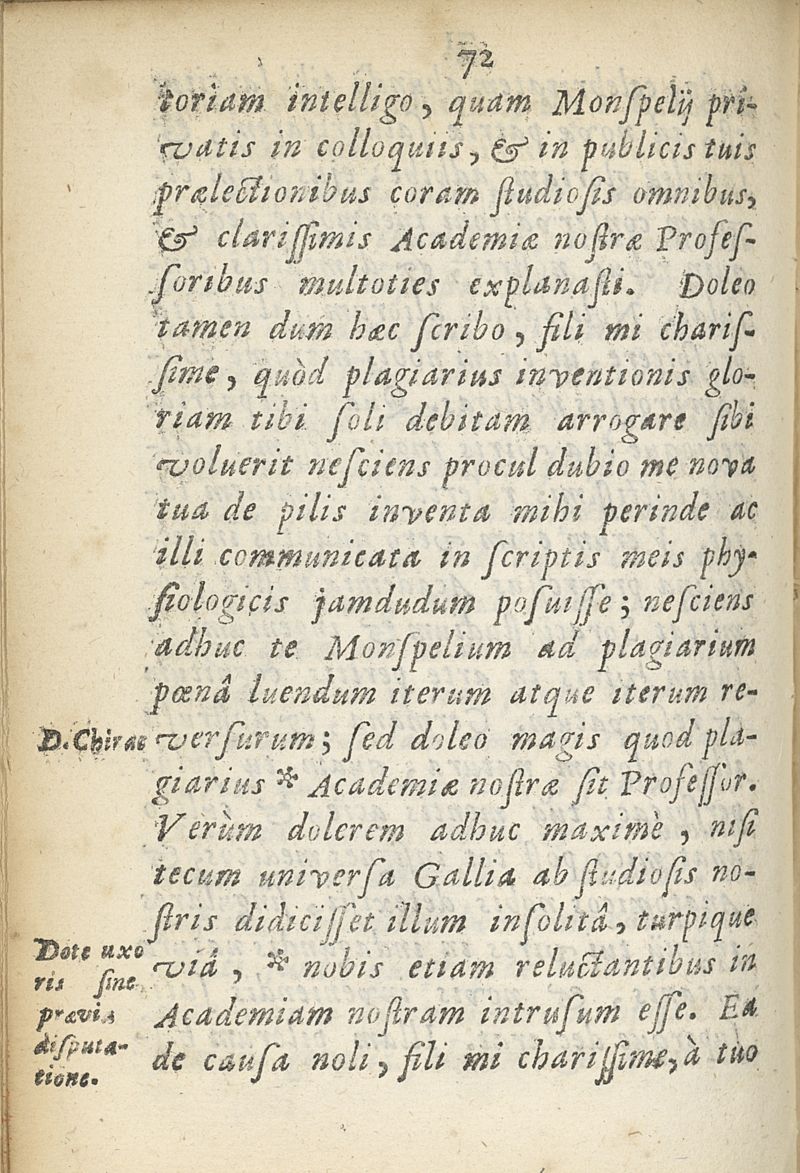 72
toriam intelligo, quam Monſpelij pri-
vatis in colloquiis, & in publicis tuis
prælectionibus coram ſtudioſis omnibus,
& clariſſimis Academiæ noſtræ Profeſ-
ſoribus multoties explanaſti. Doleo
tamen dum hæc ſcribo, fili mi chariſ-
ſime, quòd plagiarius inventionis glo-
riam tibi ſoli debitam arrogare ſibi
voluerit neſciens procul dubio me nova
tua de pilis inventa mihi perinde ac
illi communicata in ſcriptis meis phy-
ſiologicis jamdudum poſuiſſe; neſciens
adhuc te Monſpelium ad plagiarium
pœnâ luendum iterum atque iterum re-
D. Chirac
verſurum; ſed doleo magis quod pla-
giarius * Academiæ noſtræ ſit Profeſſor.
Verùm dolerem adhuc maximè, niſi
tecum univerſa Gallia ab ſtudioſis no-
ſtris didiciſſet illum inſolitâ, turpique
viâ, * nobis etiam reluctantibus in
Academiam noſtram intruſum eſſe. Ea
de cauſa noli, fili mi chariſſime, à tuo
Dote uxo
ris ſine
prævia
diſputa-
tione.